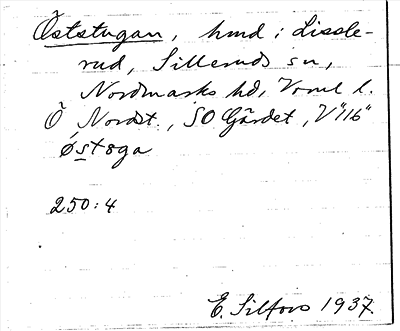 Öststugan, hmd i Lissle-
rud, Silleruds sn,
Nordmarks hd, Vrml l.
Ö Nordst., SO Gärdet, V "116"
østøga
250:4
E. Silfors 1937.